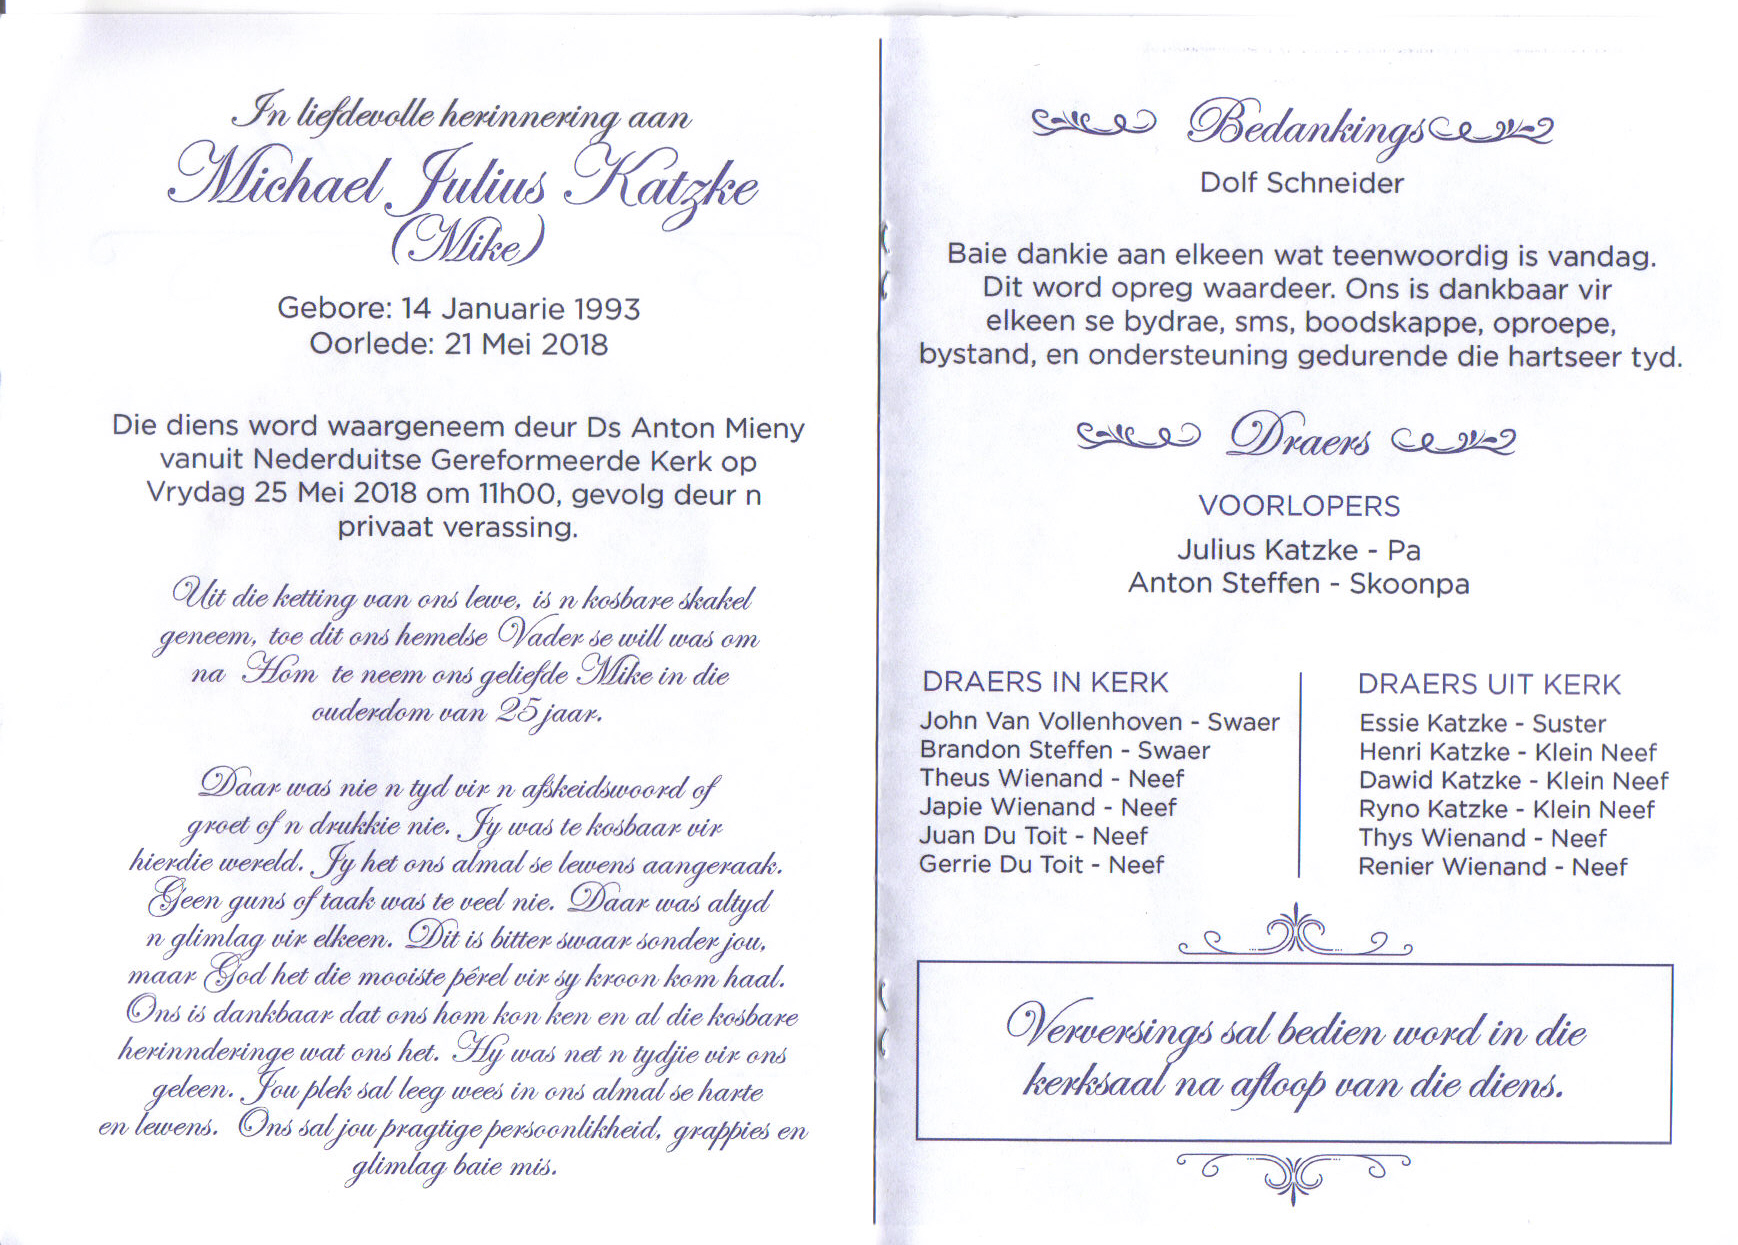 In liefdevolle herinnering aan
Michael Julius Katzke
(Mike)
Gebore: 14 Januarie 1993
Oorlede: 21 Mei 2018
Die diens word waargeneem deur Ds Anton Mieny
vanuit Nederduitse Gereformeerde Kerk op
Vrydag 25 Mei 2018 om 11h00, gevolg deur n
privaat verassing.
Uit die ketting van ons lewe, is n kosbare skakel
geneem, toe dit ons hemelse Vader se will was om
na Hom te neem ons geliefde Mike in die
ouderdom van 25 jaar.
Daar was nie n tyd vir n afskeidswoord of
groet of n drukkie nie. Jy was te kosbaar vir
hierdie wereld. Jy het ons almal se lewens aangeraak.
Geen guns of taak was te veel nie. Daar was altyd
n glimlag vir elkeen. Dit is bitter swaar sonder jou,
maar God het die mooiste pêrel vir sy kroon kom haal.
Ons is dankbaar dat ons hom kon ken en al die kosbare
herinnderinge wat ons het. Hy was net n tydjie vir ons
geleen. Jou plek sal leeg wees in ons almal se harte
en lewens. Ons sal jou pragtige persoonlikheid, grappies en
glimlag baie mis.
Bedankings
Dolf Schneider
Baie dankie aan elkeen wat teenwoordig is vandag.
Dit word opreg waardeer. Ons is dankbaar vir
elkeen se bydrae, sms, boodskappe, oproepe,
bystand, en ondersteuning gedurende die hartseer tyd.
Draers
VOORLOPERS
Julius Katzke - Pa
Anton Steffen - Skoonpa
DRAERS IN KERK
John Van Vollenhoven - Swaer
Brandon Steffen - Swaer
Theus Wienand - Neef
Japie Wienand - Neef
Juan Du Toit - Neef
Gerrie Du Toit - Neef
DRAERS UIT KERK
Essie Katzke - Suster
Henri Katzke - Klein Neef
Dawid Katzke - Klein Neef
Ryno Katzke - Klein Neef
Thys Wienand - Neef
Renier Wienand - Neef
Verversings sal bedien word in die
kerksaal na afloop van die diens.